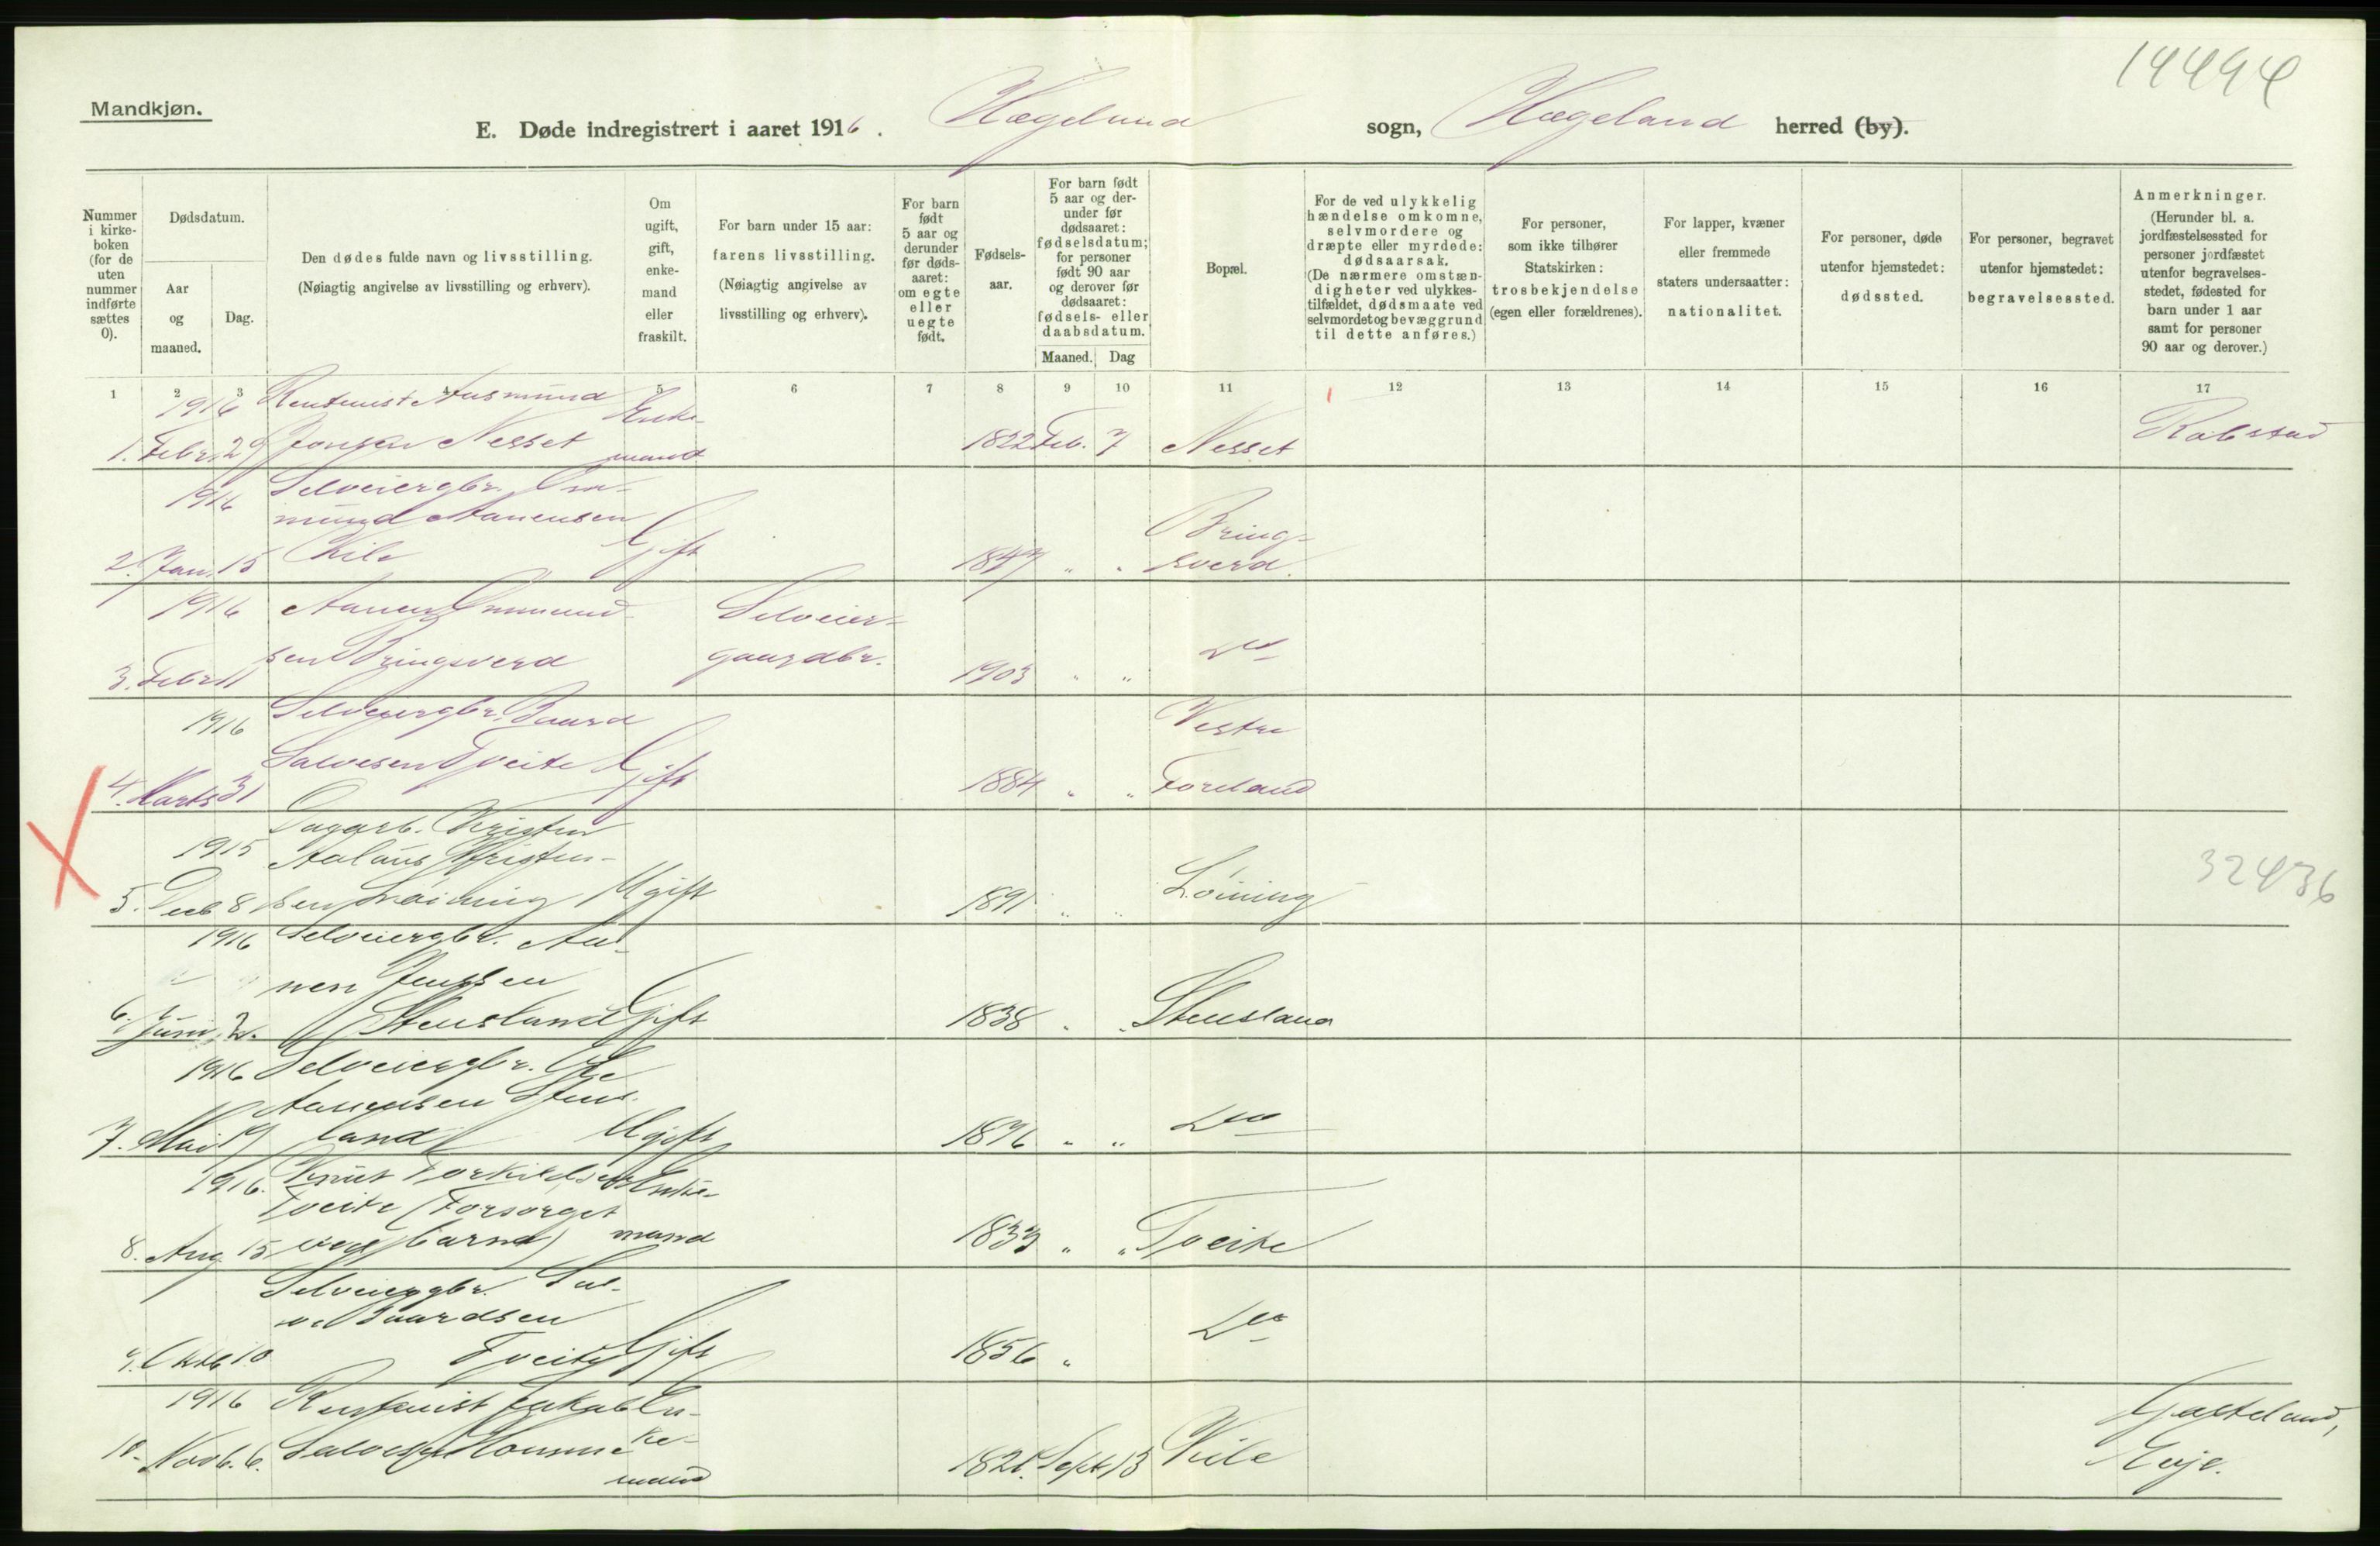 14494
Mandkjøn.
E. Døde indregistrert i aaret 1916. Hægeland sogn, Hægeland herred (by).
Nummer i kirke- boken (for de uten nummer indførte sættes 0).
Dødsdatum.
Aar og maaned.
Dag.
Den dødes fulde navn og livsstilling.
(Nøiagtig angivelse av livsstilling og erhverv).
Om ugift, gift, enke- mand eller fraskilt.
For barn under 15 aar: farens livsstilling.
(Nøiagtig angivelse av livsstilling og erhverv).
For barn født 5 aar og derunder før døds- aaret: om egte eller uegte født.
Fødsels- aar.
For barn født 5 aar og der- under før dødsaaret: fødselsdatum; for personer født 90 aar og derover før dødsaaret: fødsels- eller daabsdatum.
Maaned. Dag
Bopæl.
For de ved ulykkelig hændelse omkomne, selvmordere og dræpte eller myrdede: dødsaarsak.
(De nærmere omstæn- digheter ved ulykkes- tilfældet, dødsmaate ved selvmordet og bevæggrund til dette anføres.)
For personer, som ikke tilhører Statskirken: trosbekjendelse (egen eller forældrenes).
For lapper, kvæner eller fremmede staters undersaatter: nationalitet.
For personer, døde utenfor hjemstedet: dødssted.
For personer, begravet utenfor hjemstedet: begravelsessted.
Anmerkninger.
(Herunder bl. a. jordfæstelsessted for personer jordfæstet utenfor begravelses- stedet, fødested for barn under 1 aar samt for personer 90 aar og derover.)
1 2 3 4 5 6 7 8 9 10 11 12 13 14 15 16 17
1916 Rentenist Aasmund Enke-
1. Febr. 29 Jonsen Nesset mand 1822 Feb. 7 Nesset Robstad
1916 Selveiergbr. Om-
mund Aanensen Bring-
2. Jan. 15 Kile Gift 1847 " " sverd.
1916 Aanen Ommund- Selveier-
3. Febr. 11 sen Bringsverd gaardbr. 1903 " " Do
1916 Selveiergbr. Baard Vestre
4. Marts 31 Salvesen Tveite Gift 1884 " " Foreland
Dagarb. Kristen
1915 Aalaus Kristen-
5. Decb 8 sen Løining Ugift 1891 " " Løining 32436
1916 Selveiergbr. Aa-
nen Jenssen
6. Juni 2. Stensland Gift 1838 " " Stensland
1916 Selveiergbr. Ole
Aanensen Stens-
7. Mai 19 land Ugift 1876 " " Do
1916. Knut Torkildsen Enke-
Tveite (Forsørget
8. Aug. 15 barna) mand 1833 " " Tveite
Selveiergbr. Sal-
ve Baardsen
9. Oktb 10 Tveite Gift 1856 " Do
1916 Rentenist Jakob En- Gasteland,
10. Novb. 6. Salvesen Homme ke- 1821. Sept. 13 Kile Evje.
mand